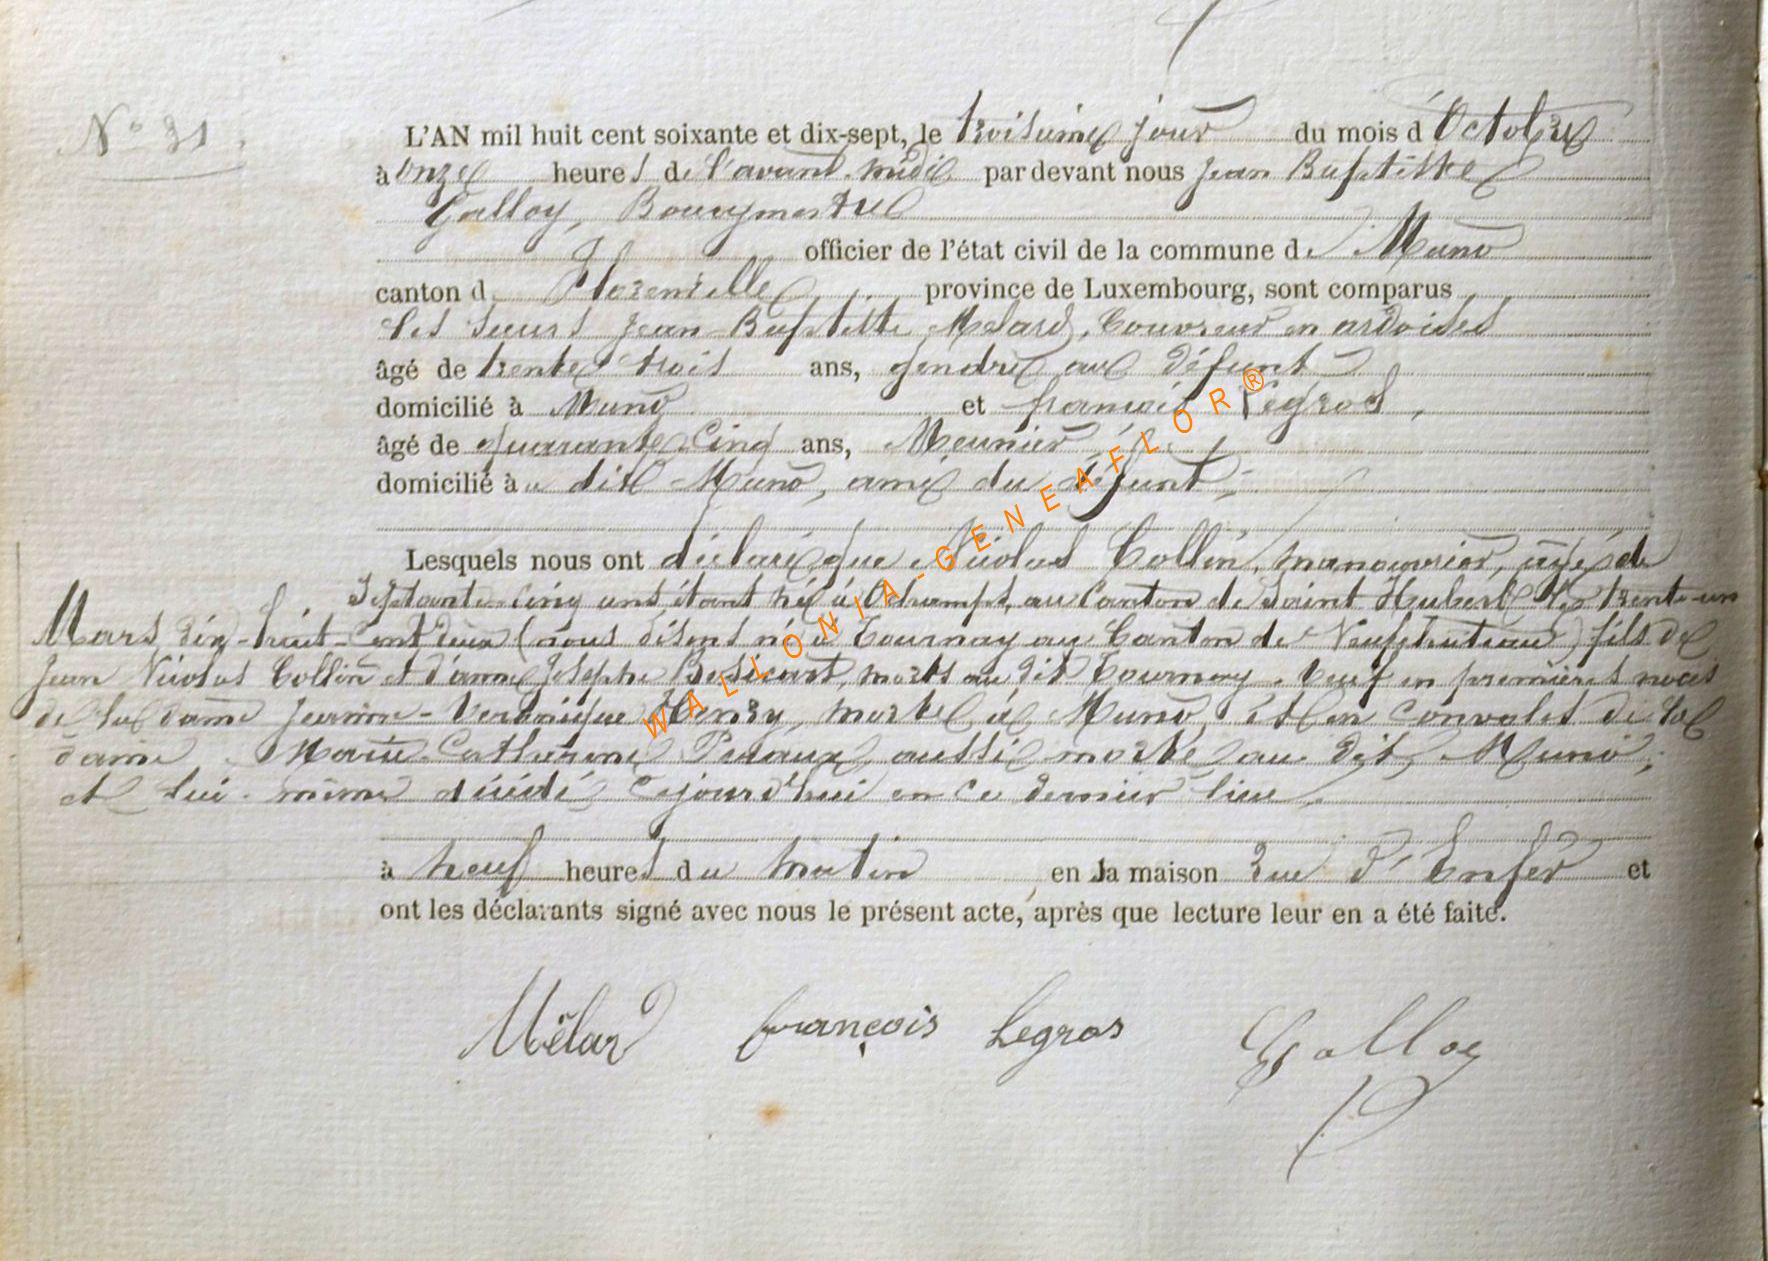 N° 31.
L'AN mil huit cent soixante et dix-sept, le troisième jour du mois d'Octobre
à onze heures de l'avant-midi par devant nous Jean Baptiste
Galloy, Bourgmestre
officier de l'état civil de la commune de Muno
canton de Florenville, province de Luxembourg, sont comparus
les sieurs Jean-Baptiste Mélard, Couvreur en ardoises
âgé de trente trois ans, gendre au défunt
domicilié à Muno et françois Legros,
âgé de quarante-cinq ans, Meunier
domicilié au dit Muno, ami du défunt,
Lesquels nous ont déclaré que Nicolas Collin, manouvrier, âgé de
Septante-cinq ans, étant né à Ochamps, au Canton de Saint Hubert le trente-un
Mars dix-huit-cent deux (nous disons né à Tournay au Canton de Neufchateau) fils de
Jean Nicolas Collin et d'anne Josephe morts au dit Tournay. Veuf en premières noces
de la dame Jeanne-Véronique Henry, morte à Muno, et en convoles de la
dame Marie-Catherine aussi morte au dit Muno,
et lui-même décédé cejourd'hui en ce dernier lieu,
à neuf heures du matin en la maison rue d'Enfer et
ont les déclarants signé avec nous le présent acte, après que lecture leur en a été faite.
Mélard françois Legros Galloy
WALLONIA-GENEAFLOR®